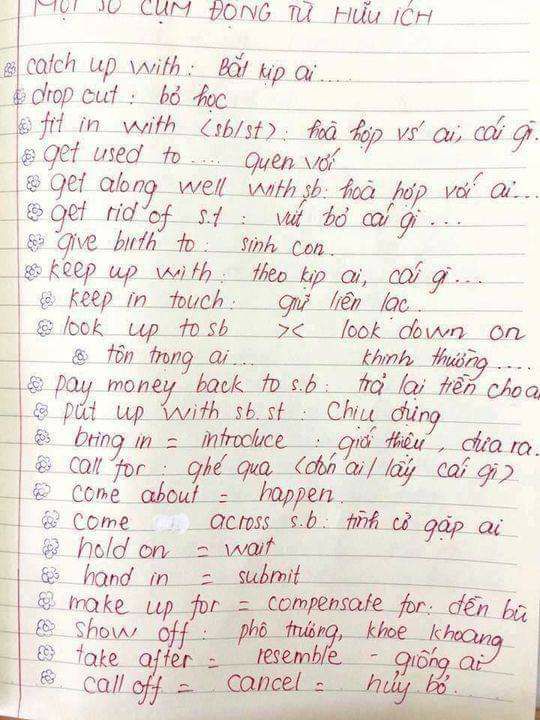 MỘT SỐ CỤM ĐỘNG TỪ HỮU ÍCH
catch up with : Bắt kịp ai ....
drop out : bỏ học
fit in with (sb/st) : hoà hợp vs ai, cái gì.
get used to .... quen với
get along well with sb : hoà hợp với ai...
get rid of s.t : vứt bỏ cái gì ...
give birth to : sinh con.
keep up with : theo kịp ai, cái gì ...
keep in touch : giữ liên lạc.
look up to sb >< look down on
tôn trọng ai ... khinh thường ....
pay money back to s.b : trả lại tiền cho a
put up with sb. st : Chịu đựng
bring in = introduce : giới thiệu, đưa ra.
call for : ghé qua (đón ai / lấy cái gì)
come about = happen.
come across s.b : tình cờ gặp ai
hold on = wait
hand in = submit
make up for = compensate for : đền bù
show off : phô trương, khoe khoang
take after = resemble - giống ai
call off = cancel = hủy bỏ.